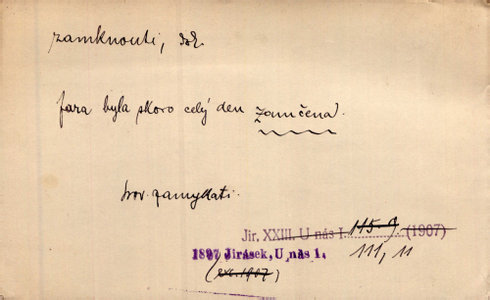 zamknouti, dok.
fara byla skoro celý den zamčena.
srov. zamykati.
Jir. XXIII. U nás I. 115.9 (1907)
1897 Jirásek, U nás 1. 111, 11
(1907)